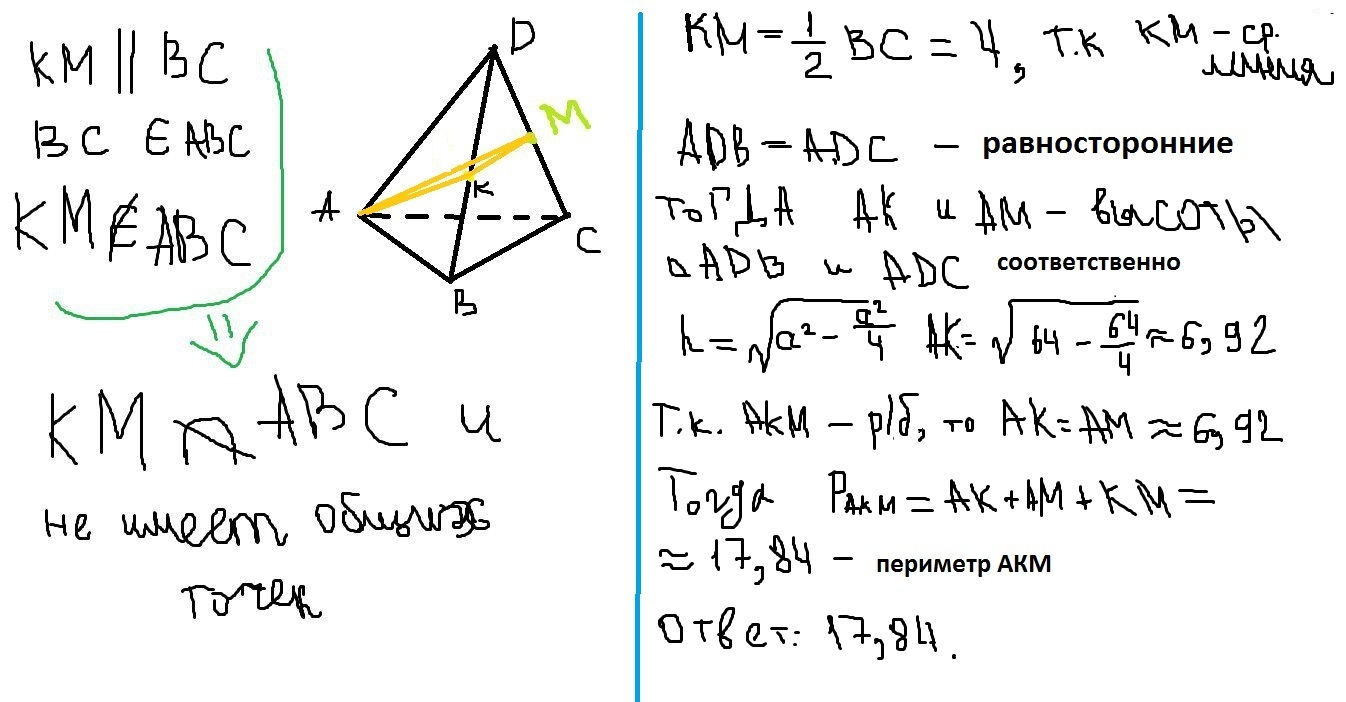 KM || BC
BC ∈ ABC
KM ∉ ABC
⇓
KM ∩ ABC и
не имеет общих
точек
D
M
K
A
C
B
KM = 1/2 BC = 4, т.к KM – ср.
линия
ADB = ADC – равносторонние
тогда AK и AM – высоты
△ADB и ADC соответственно
h = √(a² – a²/4) AK = √(64 – 64/4) ≈ 6,92
Т.к. AKM – р/б, то AK = AM ≈ 6,92
Тогда P_AKM = AK + AM + KM =
≈ 17,84 – периметр AKM
Ответ: 17,84.